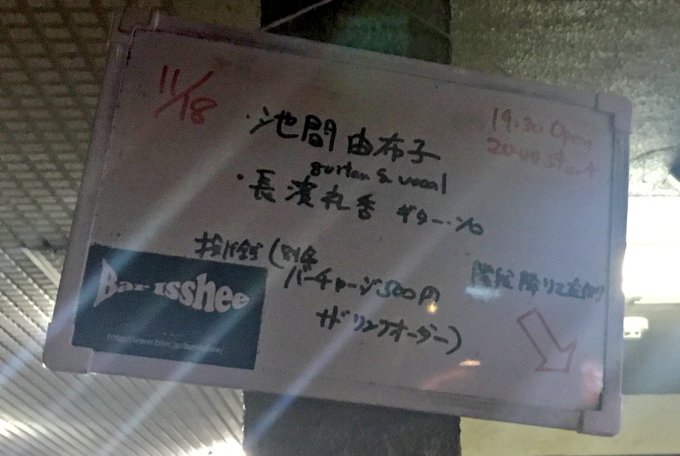 11/18
19:30 Open
20:00 start
・池間由布子
guitar & vocal
・長濱礼香 ギター・Vo
投げ銭(別途
バーチャージ500円
+ドリンクオーダー)
階段降りて左側
Bar Isshee